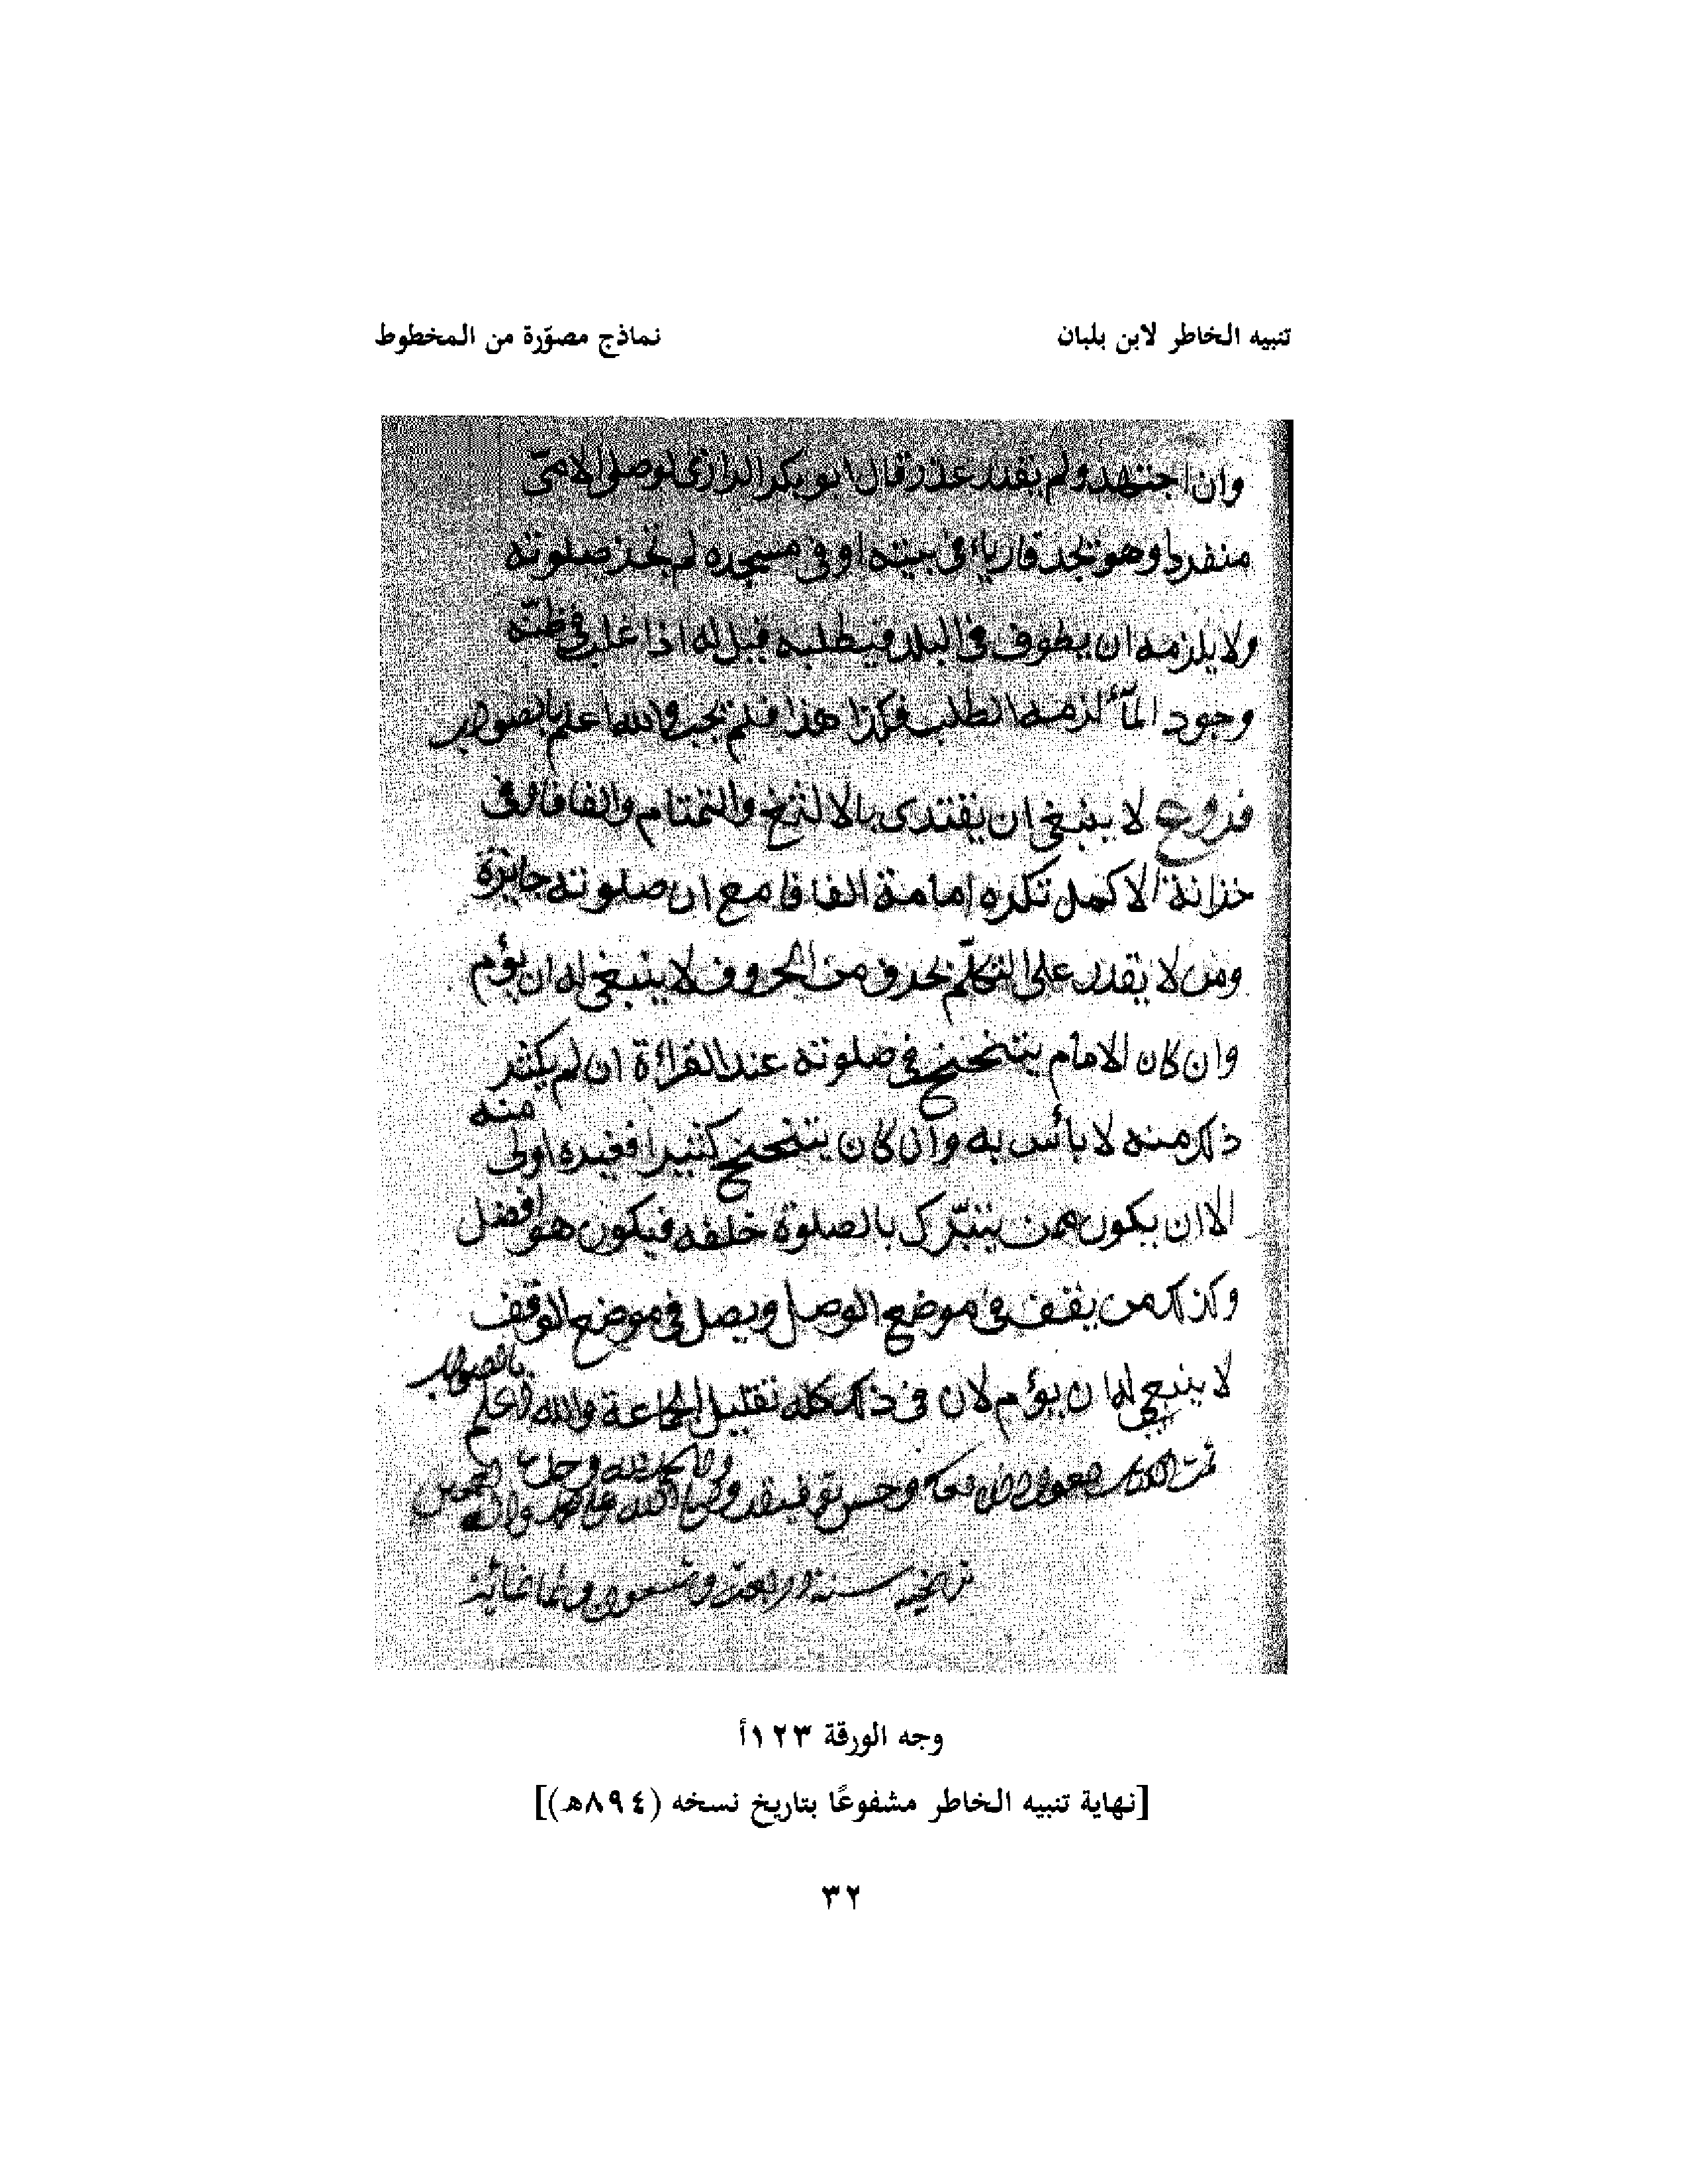 تنبيه الخاطر لابن بلبان
نماذج مصوّرة من المخطوط
وان اجتهد ولم يقدر عذر قال ابو بكر الرازى لو صلى الامىّ
منفردا وهو يجد قاريا فى بيته او فى مسجده لم تجز صلوته
ولا يلزمه ان يطوف فى البلد فيطلبه قيل له اذا غلب فى ظنّه
وجود المآء لزمه الطلب فكذا هذا فلم يجب والله اعلم بالصواب
فروع لا ينبغى ان يقتدى بالالثغ والتمتام والفافا وفى
خزانة الاكمل تكره امامة الفافا مع ان صلوته جايزة
ومن لا يقدر على التكلّم بحرف من الحروف لا ينبغى له ان يؤم
وان كان الامام يتنحنح فى صلوته عند القراءة ان لم يكثر
ذلك منه لا بأس به وان كان يتنحنح كثيرا فغيره اولى
منه
الا ان يكون ممن يتبرّك بالصلوة خلفه فيكون هو افضل
وكذلك من يقف فى موضع الوصل ويصل فى موضع الوقف
لا ينبغى له ان يؤم لان فى ذلك كله تقليل الجماعة والله اعلم
بالصواب
تمت الكتاب بعون الله وحسن توفيقه
سنة اربعة وتسعون وثمانمائة
وجه الورقة ١٢٣أ
[نهاية تنبيه الخاطر مشفوعًا بتاريخ نسخه (٨٩٤هـ)]
٣٢